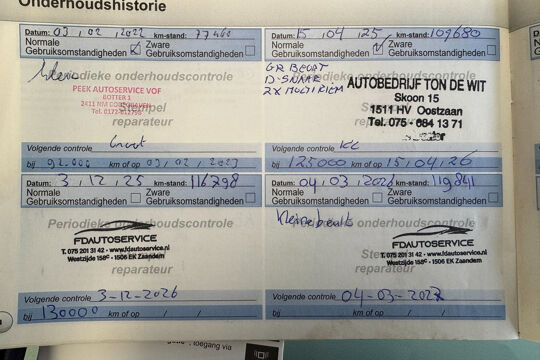 Onderhoudshistorie
Datum: 03 , 02 , 2022 km-stand: 77460
Normale Gebruiksomstandigheden Zware Gebruiksomstandigheden
Klein
Periodieke onderhoudscontrole
PEEK AUTOSERVICE VOF
BOTTER 1
2411 NM
Stempel
reparateur
Groot
Volgende controle
bij 92.000 km of op 03 / 02 / 2023
Datum: 15 , 04 , 25 km-stand: 109680
Normale Gebruiksomstandigheden Zware Gebruiksomstandigheden
GR BEURT
D-SNAAR
2X MULTIRIEM
Periodieke onderhoudscontrole
AUTOBEDRIJF TON DE WIT
Skoon 15
1511 HV Oostzaan
Tel. 075 - 684 13 71
reparateur
Volgende controle KL
bij 125000 km of op 15, 04, 26
Datum: 3, 12, 25 km-stand: 116798
Normale Gebruiksomstandigheden Zware Gebruiksomstandigheden
Periodieke onderhoudscontrole
FDAUTOSERVICE
T. 075 201 31 42 - www.fdautoservice.nl
Westzijde 158C - 1506 EK Zaandam
reparateur
Volgende controle 3-12-2026
bij 130000 km of op / /
Datum: 04, 03, 2026 km-stand: 119841
Normale Gebruiksomstandigheden Zware Gebruiksomstandigheden
Kleine beurt
Periodieke onderhoudscontrole
FDAUTOSERVICE
T. 075 201 31 42 - www.fdautoservice.nl
Westzijde 158C - 1506 EK Zaandam
reparateur
Volgende controle 04-03-2027
bij km of op / /
toegang via